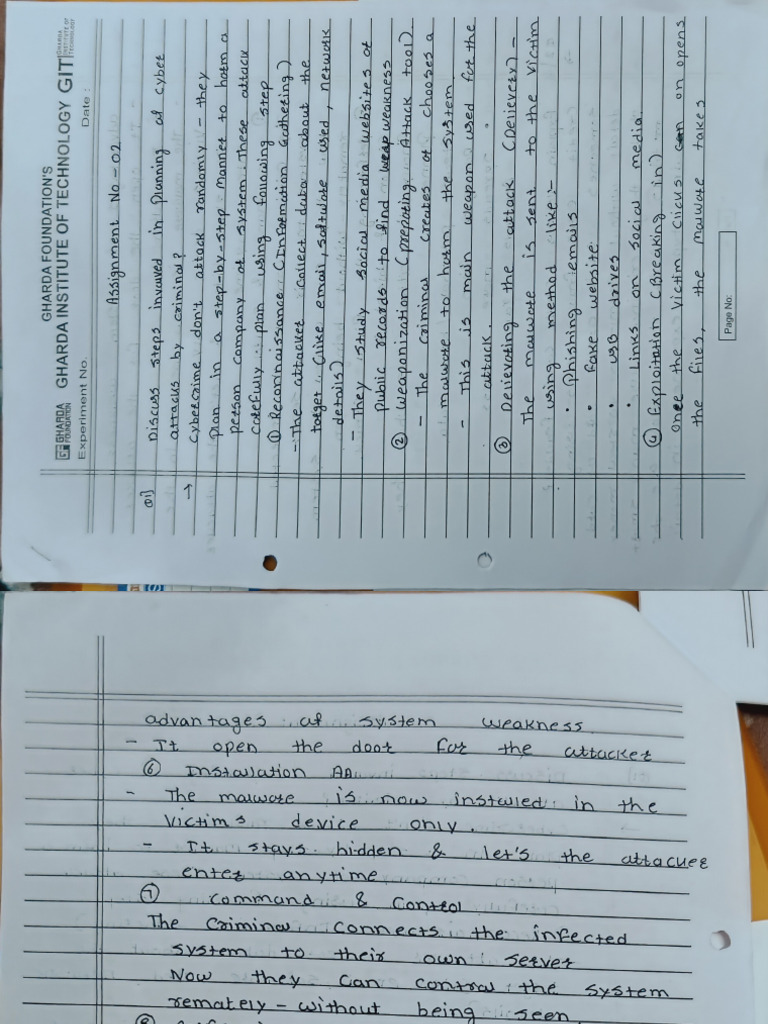 GHARDA FOUNDATION'S
GHARDA INSTITUTE OF TECHNOLOGY
GIT GHARDA INSTITUTE OF TECHNOLOGY
GHARDA FOUNDATION
Experiment No.
Date :
Assignment No - 02
Q1) Discuss steps involved in planning of cyber
attacks by criminal?
→ Cybercrime don't attack randomly - they
plan in a step-by-step manner to harm a
person company or system. These attack
carefully plan using following step
① Reconnaissance (Information Gathering)
- The attacker collect data about the
target (like email, software used, network
details)
- They study social media websites or
public records to find weakness
② Weaponization (preparing Attack tool)
- The criminal creates or chooses a
malware to harm the system
- This is main weapon used for the
attack.
③ Delievating the attack (Delievery) -
The malware is sent to the victim
using method like :-
• Phishing emails
• fake website
• USB drives
• Links on social media.
④ Exploitation (Breaking in)
Once the victim clicks on opens
the files, the malware takes
Page No:
advantages of system weakness.
- It open the door for the attacker
⑥ Installation
- The malware is now installed in the
victims device only.
- It stays hidden & let's the attacker
enter anytime
⑦ command & Control
The criminal connects the infected
system to their own server
Now they can control the system
remately - without being seen
⑧